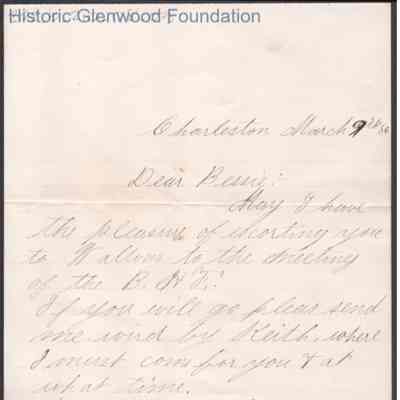 Historic Glenwood Foundation
Charleston March 9
Dear Bessie:
May I have
the pleasure of escorting you
to Wallous to the meeting
of the B. H. F.
If you will go pleas send
me word by Keith, where
I must com for you & at
what time.